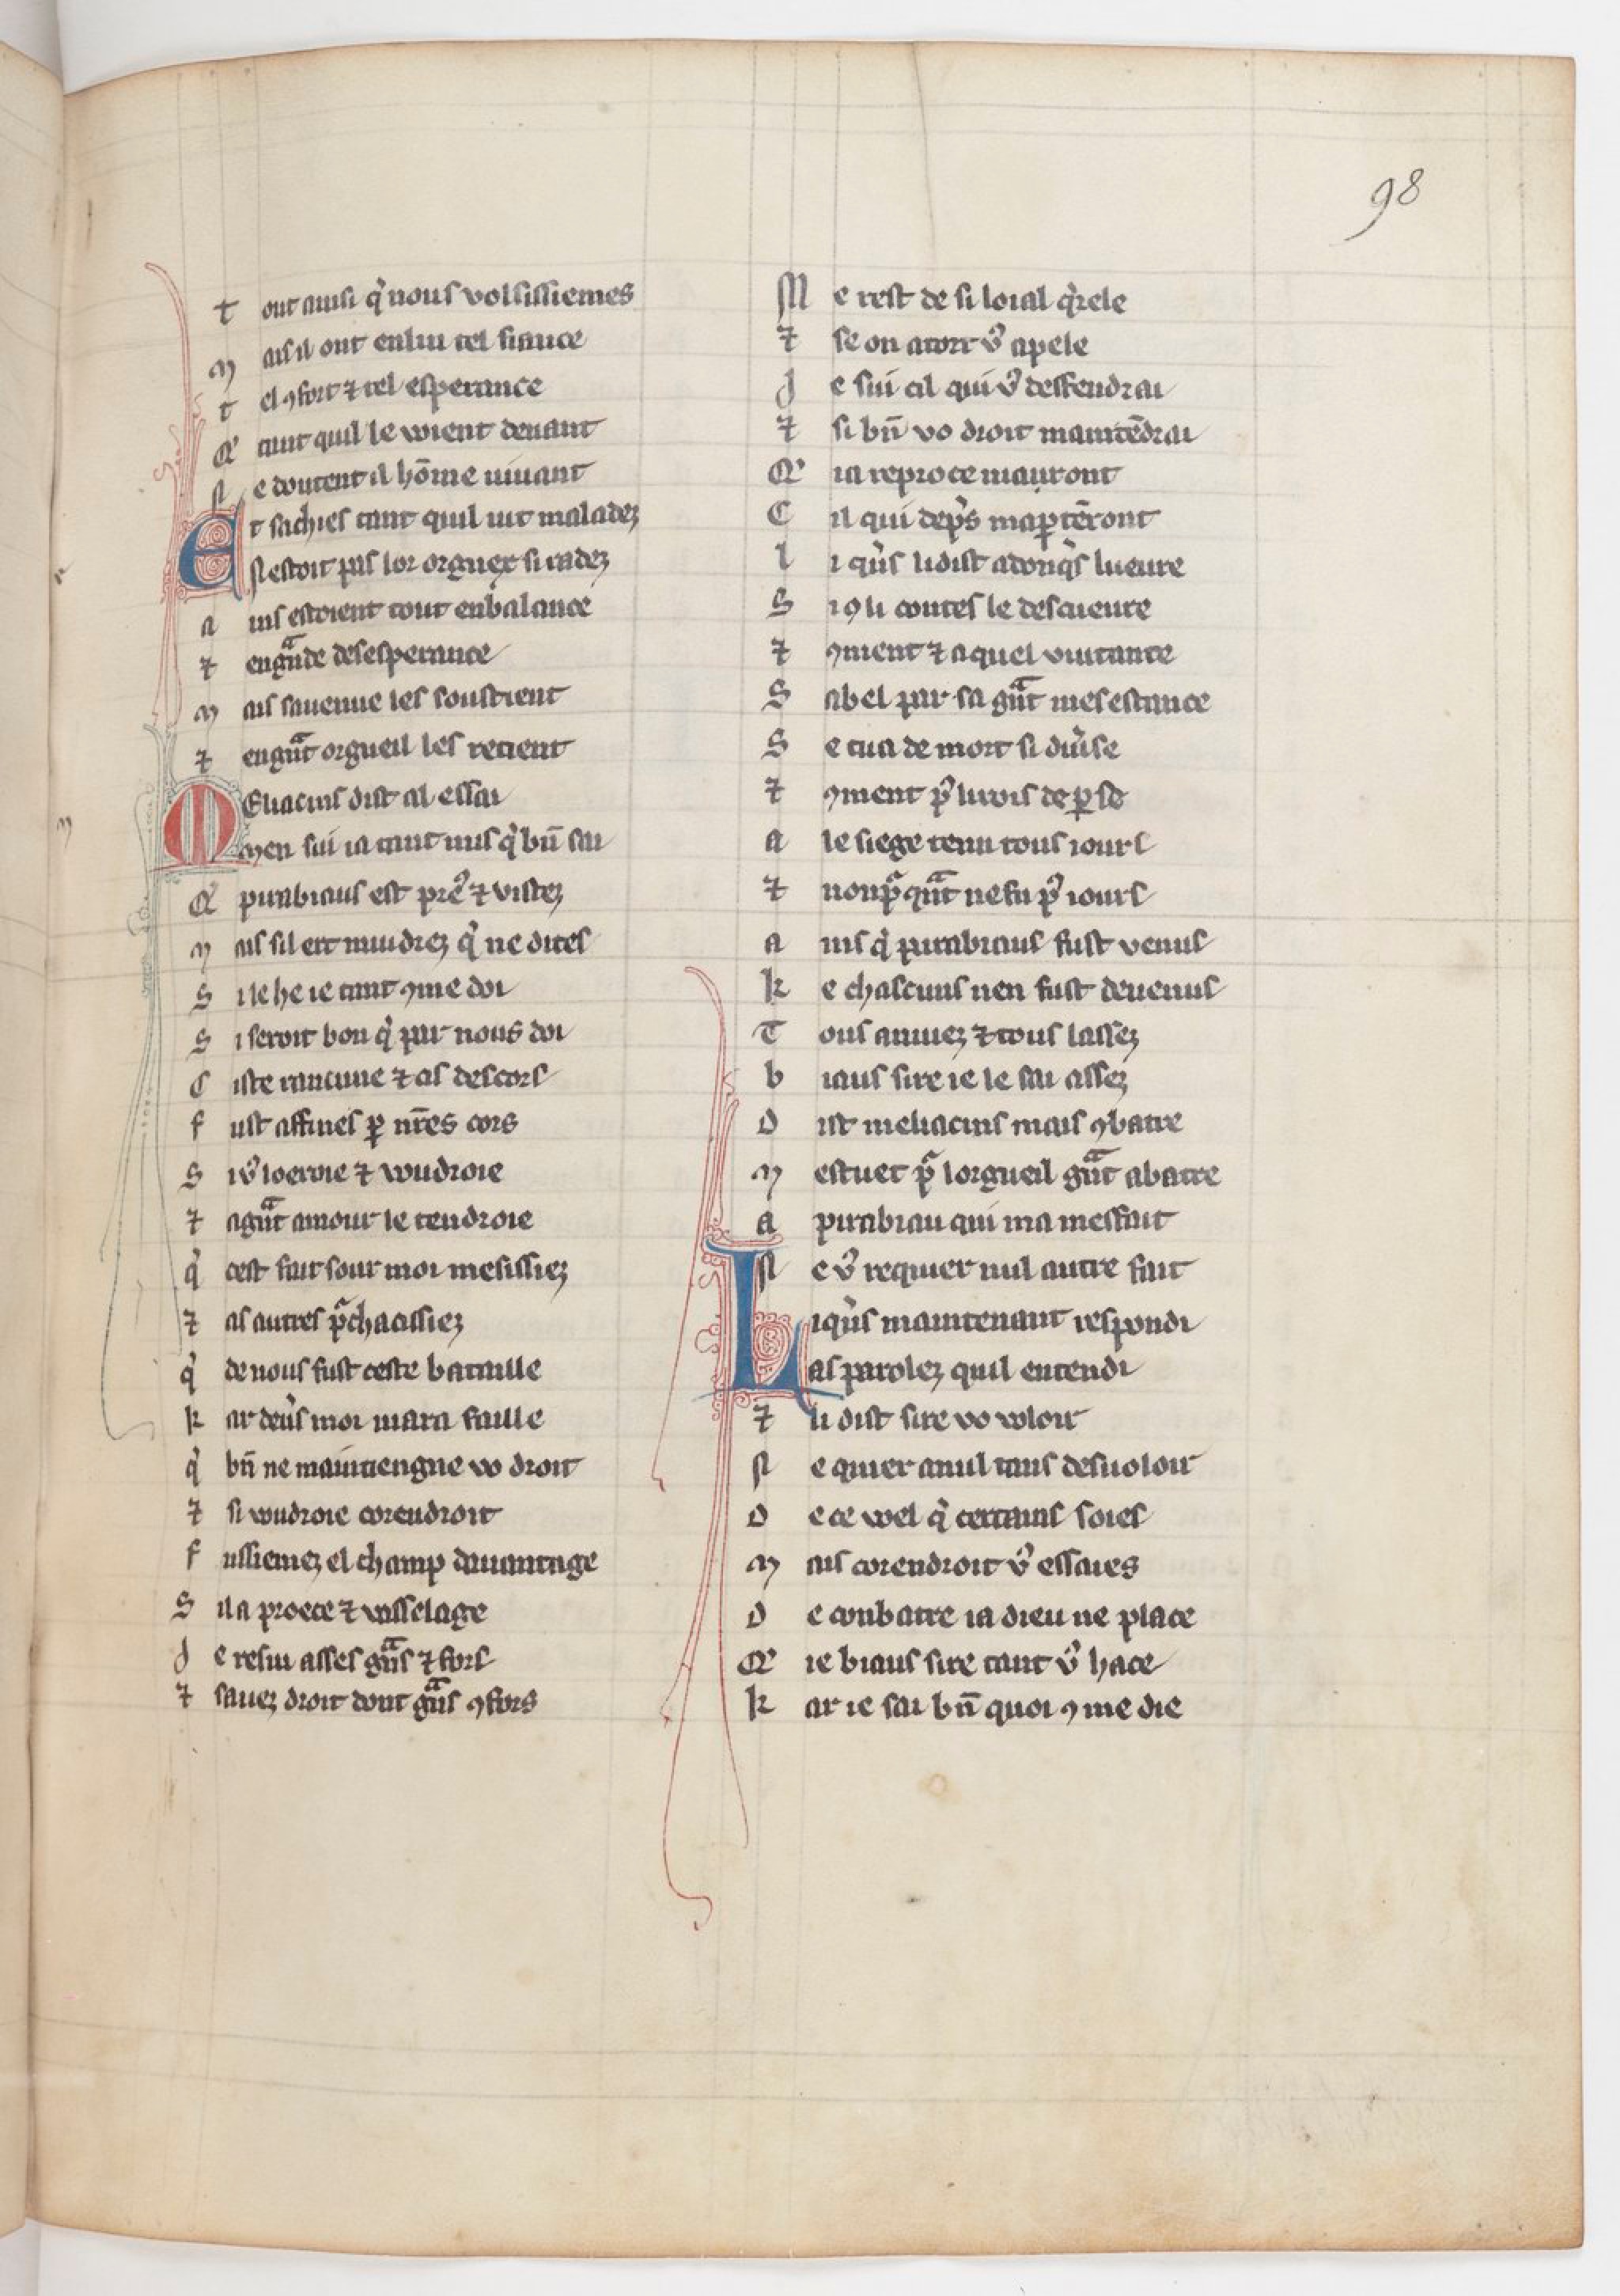 98
t out ausi q̇ nous volsissiemes
m ais il ont en lui tel fiance
t el ꝯfort ⁊ tel esperance
Q' tant quil le voient deuant
N e doutent il hōme uiuant
Et sachies tant quil iut maladez
N estoit pas lor orguex si radez
a ins estoient tout en balance
⁊ en gͣnde desesperance
m ais sauenue les soustient
⁊ en gͣnt orgueil les retient
Meliacins dist al essai
m en sui ia tant mis q̇ bn̄ sai
Q' pirabiaus est preꝰ ⁊ vistez
m ais sil ert miudrez q̇ ne dites
S i le he ie tant ꝯme doi
S i seroit bon q̇ par nous doi
C iste rancune ⁊ cis descors
f ust affines ꝑ nr̄es cors
S i vꝰ loeroie ⁊ voudroie
⁊ a gͣnt amour le tendroie
q̇ cest fait sour moi mesissiez
⁊ as autres pͣchacissiez
q̇ de nous fust ceste bataille
k ar deu̓s moi niara faille
q̇ bn̄ ne maintiengne vo droit
⁊ si voudroie corendroit
f ussiemez el champ dauantage
S il a proece ⁊ vasselage
J e resui asses gͣns ⁊ fors
⁊ sauez droit dont gͣns ꝯfors
M e rest de si loial q̓rele
⁊ se on a tort vꝰ apele
J e sui cil qui vꝰ deffendrai
⁊ si bn̄ vo droit maintēdrai
Q' ia reproce ni auront
C il qui dep̓s map̱tēront
l i qu̓ns li dist adonq̓s lueure
S i ꝯ li contes le descueure
⁊ ꝯment ⁊ a quel viutance
S abel par sa gͣnt mesestance
S e tua de mort si diu̓se
⁊ ꝯment pꝰ li rois de ꝑse
a le siege tenu tous iours
⁊ non pͣ qͣnt ne fu pꝰ iours
a ins q̇ pirabiaus fust venus
k e chascuns nen fust deuenus
T ous anuiez ⁊ tous lassez
b iaus sire ie le sai assez
D ist meliacins mais ꝯbatre
m estuet pͣ lorgueil gͣnt abatre
a pirabiau qui ma meffait
N e vꝰ requier nul autre fait
Li qu̓ns maintenant respondi
as parolez quil entendi
⁊ li dist sire vo voloir
N e quier a nul tans desuoloir
D e ce voel q̇ certains soies
m ais corendroit vꝰ essaies
D e conbatre ia dieu ne place
Q' ie biaus sire tant vꝰ hace
k ar ie sai bn̄ quoi ꝯ me die